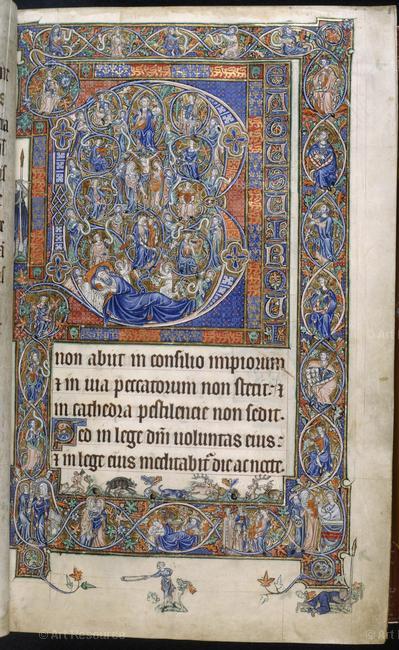 B
EATUSUIRQUI
non abiit in consilio impiorum
⁊ in uia peccatorum non stetit: ⁊
in cathedra pestilencie non sedit.
Sed in lege dn̄i uoluntas eius:
⁊ in lege eius meditabit᷑ die ac nocte.
© Art Resource